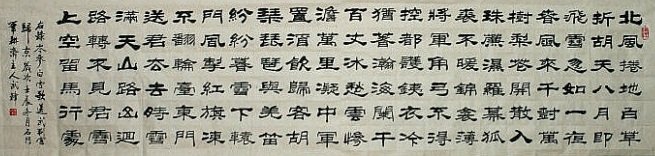 北風捲地白草
折胡天八月即
飛雪忽如一夜
春風來千樹萬
樹梨花開散入
珠簾濕羅幕狐
裘不暖錦衾薄
將軍角弓不得
控都護鐵衣冷
猶著瀚海闌干
百丈冰愁雲慘
澹萬里凝中軍
置酒飲歸客胡
琴琵琶與羌笛
紛紛暮雪下轅
門風掣紅旗凍
不翻輪臺東門
送君去去時雪
滿天山路山迴
路轉不見君雪
上空留馬行處
右錄岑參白雪歌送武判官
歸京歲次壬辰月石門
主人武